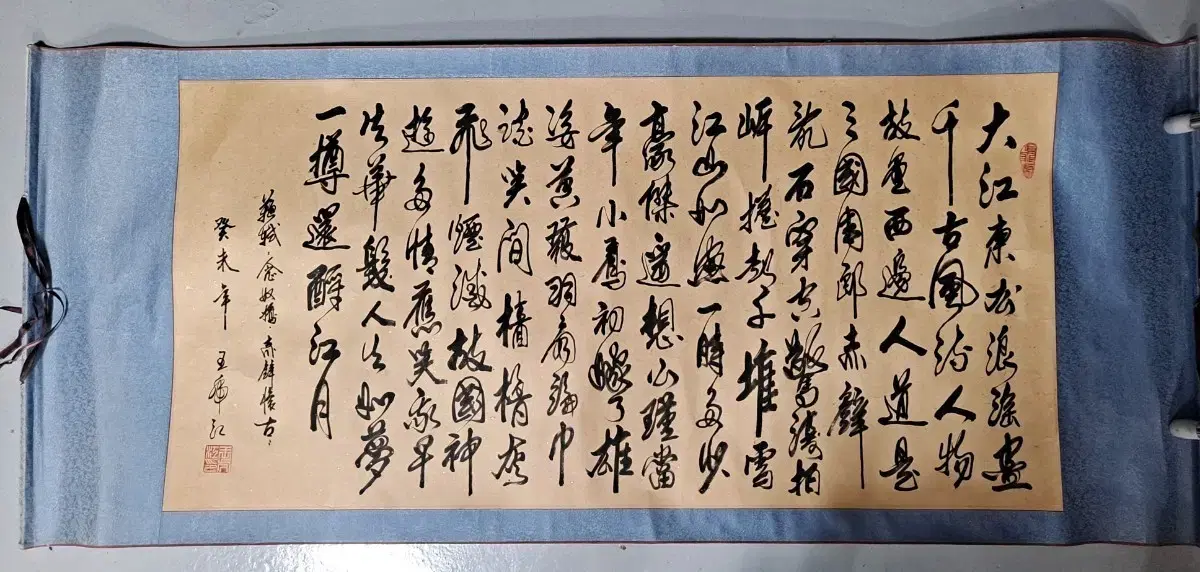 大江東去浪淘盡
千古風流人物
故壘西邊人道是
三國周郎赤壁
亂石穿空驚濤拍
岸捲起千堆雪
江山如畫一時多少
豪傑遙想公瑾當
年小喬初嫁了雄
姿英發羽扇綸巾
談笑間檣櫓灰
飛煙滅故國神
遊多情應笑我早
生華髮人生如夢
一樽還酹江月
蘇軾念奴嬌赤壁懷古
癸未年 王江